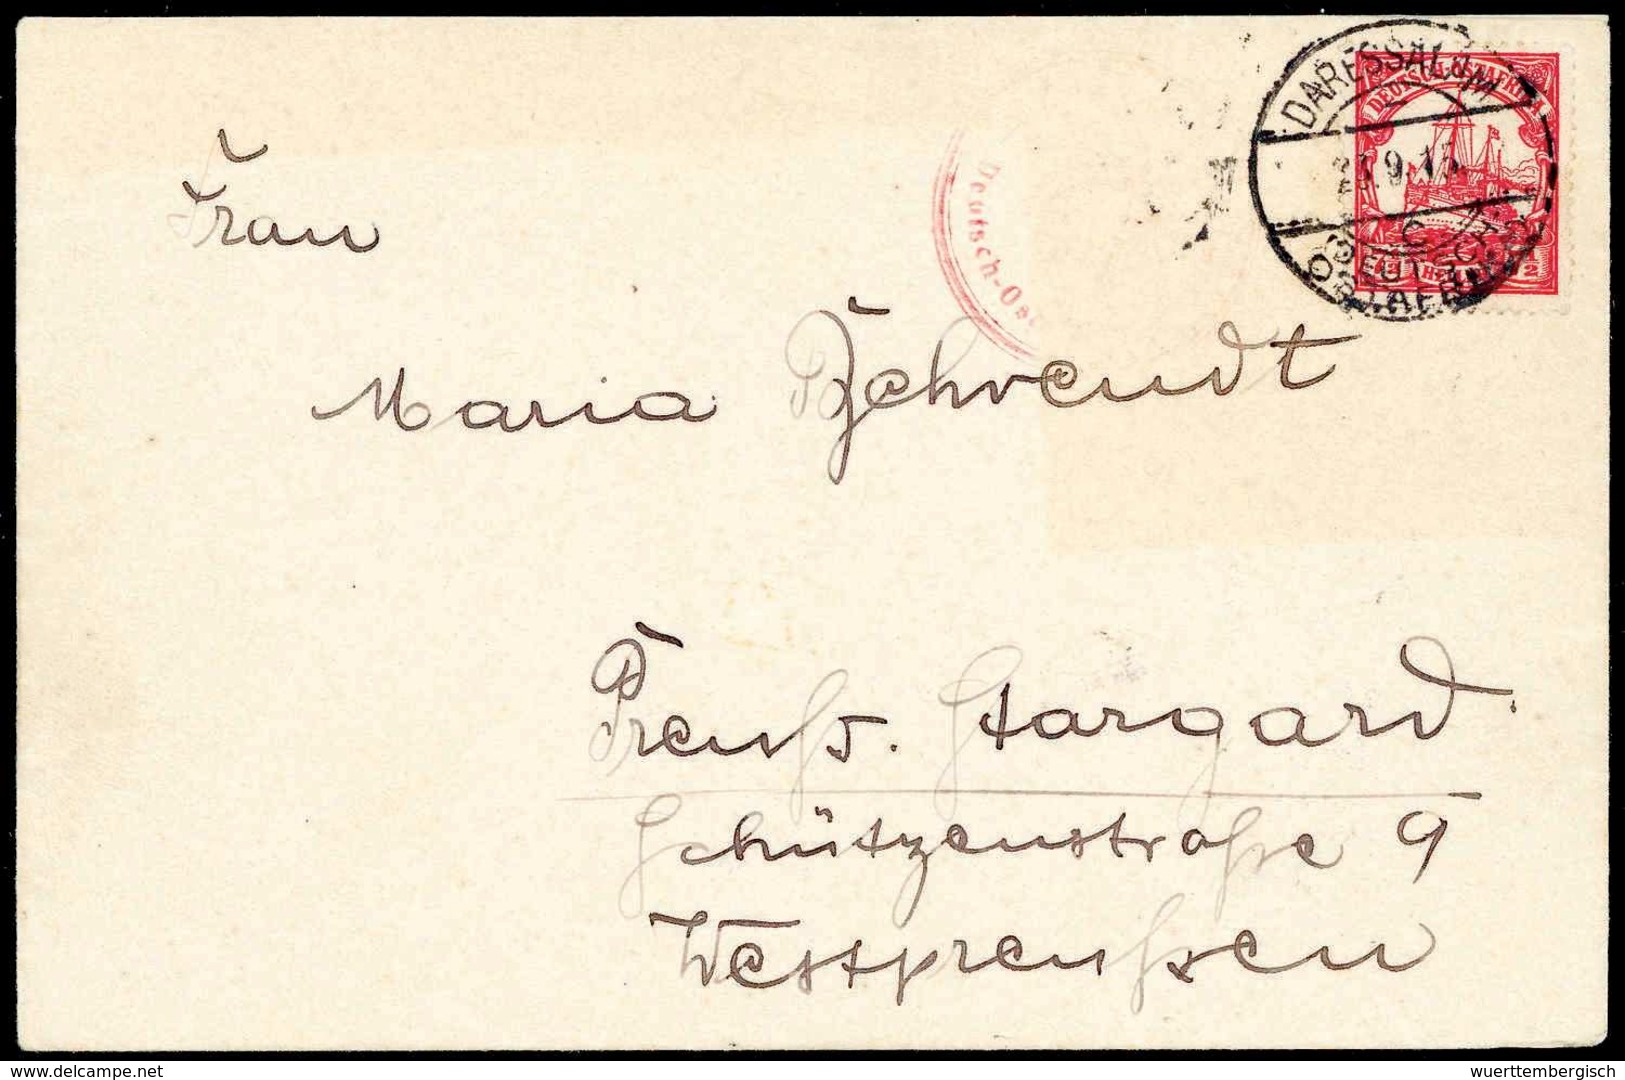 DARESSALAM
DEUTSCH-OSTAFRIKA
9.15
C
Deutsch-Os
7½ HELLER 7½
Frau
Maria Behrendt
Preuß. Stargard
Schützenstraße 9
Westpreußen
delcampe.net
wuerttembergisch